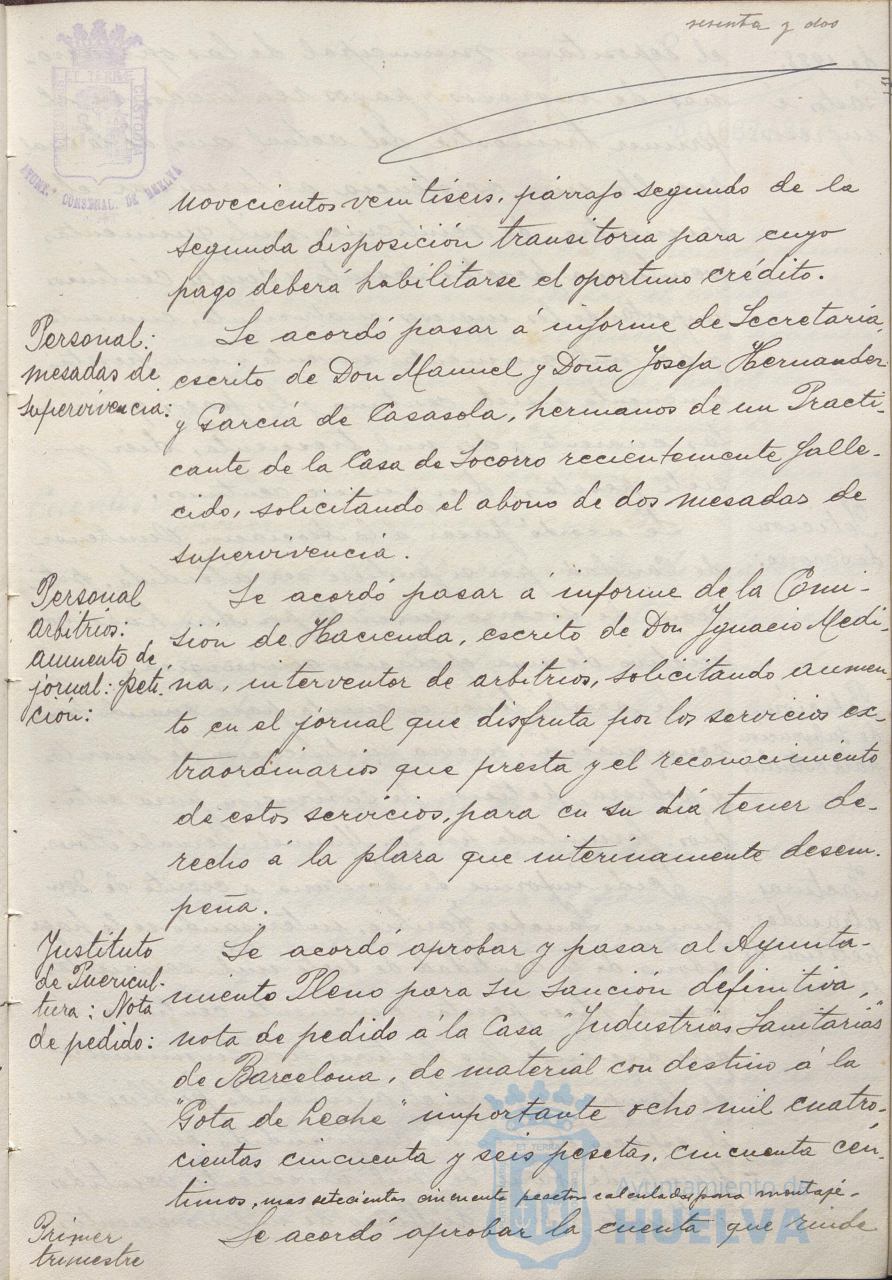 sesenta y dos
novecientos veintiseis, párrafo segundo de la
segunda disposición transitoria para cuyo
pago deberá habilitarse el oportuno crédito.
Personal:
mesadas de
supervivencia:
Se acordó pasar á informe de Secretaria,
escrito de Don Manuel y Doña Josefa Hernandez
y García de Casasola, hermanos de un Practi-
cante de la Casa de Socorro recientemente falle-
cido, solicitando el abono de dos mesadas de
supervivencia.
Personal
arbitrios:
aumento de
jornal: peti-
ción:
Se acordó pasar á informe de la Comi-
sión de Hacienda, escrito de Don Ignacio Medi-
na, interventor de arbitrios, solicitando aumen-
to en el jornal que disfruta por los servicios ex-
traordinarios que presta y el reconocimiento
de estos servicios, para en su día tener de-
recho á la plaza que interinamente desem-
peña.
Instituto
de Puericul-
tura: Nota
de pedido:
Se acordó aprobar y pasar al Ayunta-
miento Pleno para su sanción definitiva,
nota de pedido á la Casa "Industrias Sanitarias"
de Barcelona, de material con destino á la
"Gota de Leche" importante ocho mil cuatro-
cientas cincuenta y seis pesetas, cincuenta cén-
timos, mas setecientas cincuenta pesetas calculadas para montaje.
Primer
trimestre
Se acordó aprobar la cuenta que rinde
Ayuntamiento de
HUELVA